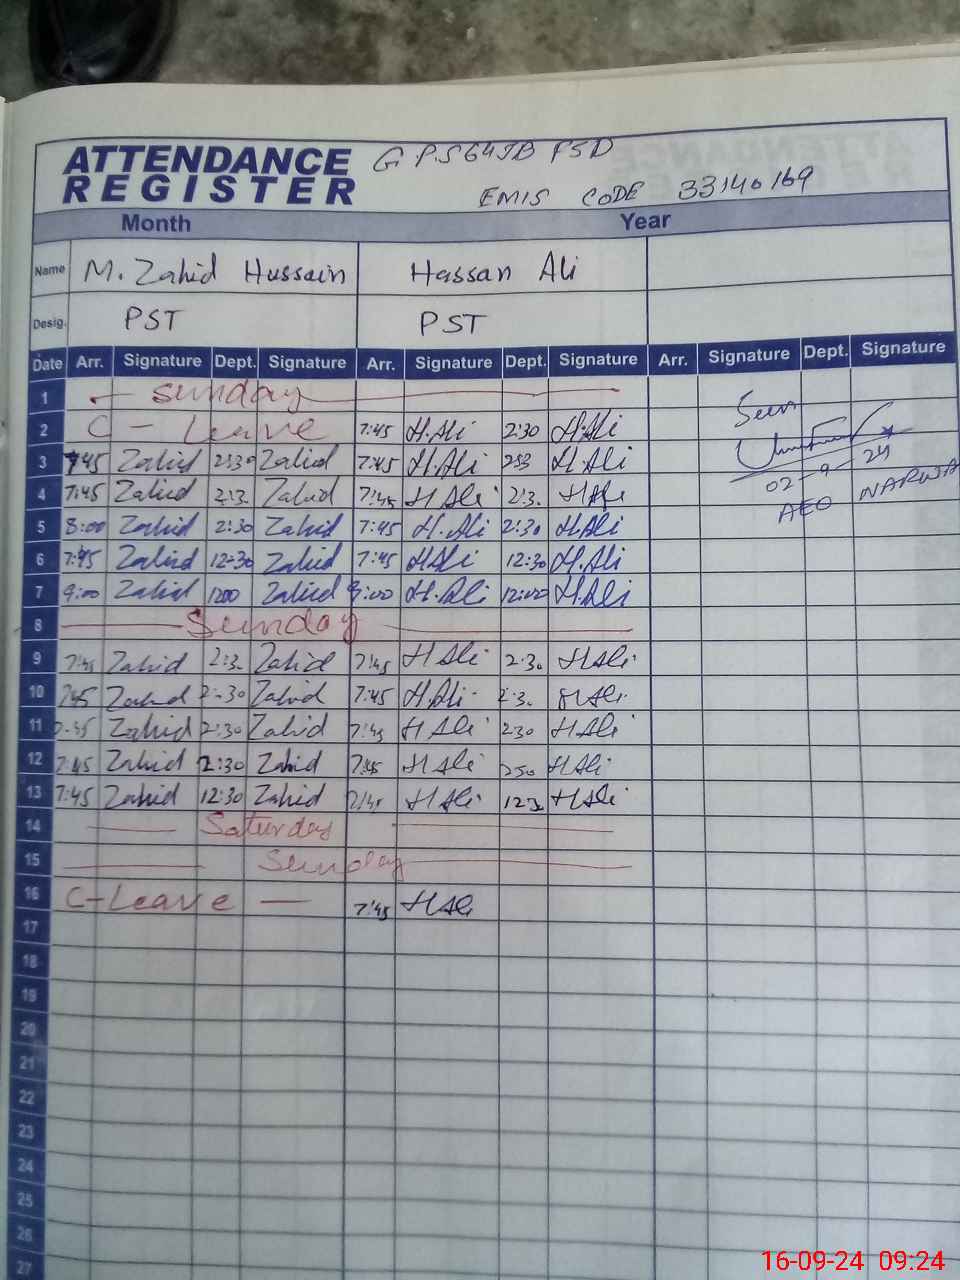 ATTENDANCE REGISTER
G PS 64 JB FSD
EMIS CODE 33140169
Month Year
Name M. Zahid Hussain Hassan Ali
Desig. PST PST
Date Arr. Signature Dept. Signature Arr. Signature Dept. Signature Arr. Signature Dept. Signature
1 Sunday
2 C - Leave 7:45 H.Ali 2:30 H.Ali
Seen
3 7:45 Zahid 2:30 Zahid 7:45 H.Ali H.Ali
02-9-24
4 7:45 Zahid 2:3. Zahid 7:45 H Ali 2:3. H Ali
AEO NARWA
5 8:00 Zahid 2:30 Zahid 7:45 H.Ali 2:30 H.Ali
6 7:45 Zahid 12:30 Zahid 7:45 H Ali 12:30 H.Ali
7 9:00 Zahid 1200 Zahid 9:00 H.Ali 12:00 H.Ali
8 Sunday
9 7:45 Zahid 2:3. Zahid 7:45 H Ali 2:3. H Ali
10 Zahid 2:30 Zahid 7:45 H.Ali 2:3. H Ali
11 Zahid 2:30 Zahid 7:45 H Ali 230 H Ali
12 7:45 Zahid 2:30 Zahid 7:45 H Ali H Ali
13 7:45 Zahid 12:30 Zahid 7:45 H Ali H Ali
14 Saturday
15 Sunday
16 C-Leave 7:45 H Ali
17
18
19
20
21
22
23
24
25
26
27
16-09-24 09:24